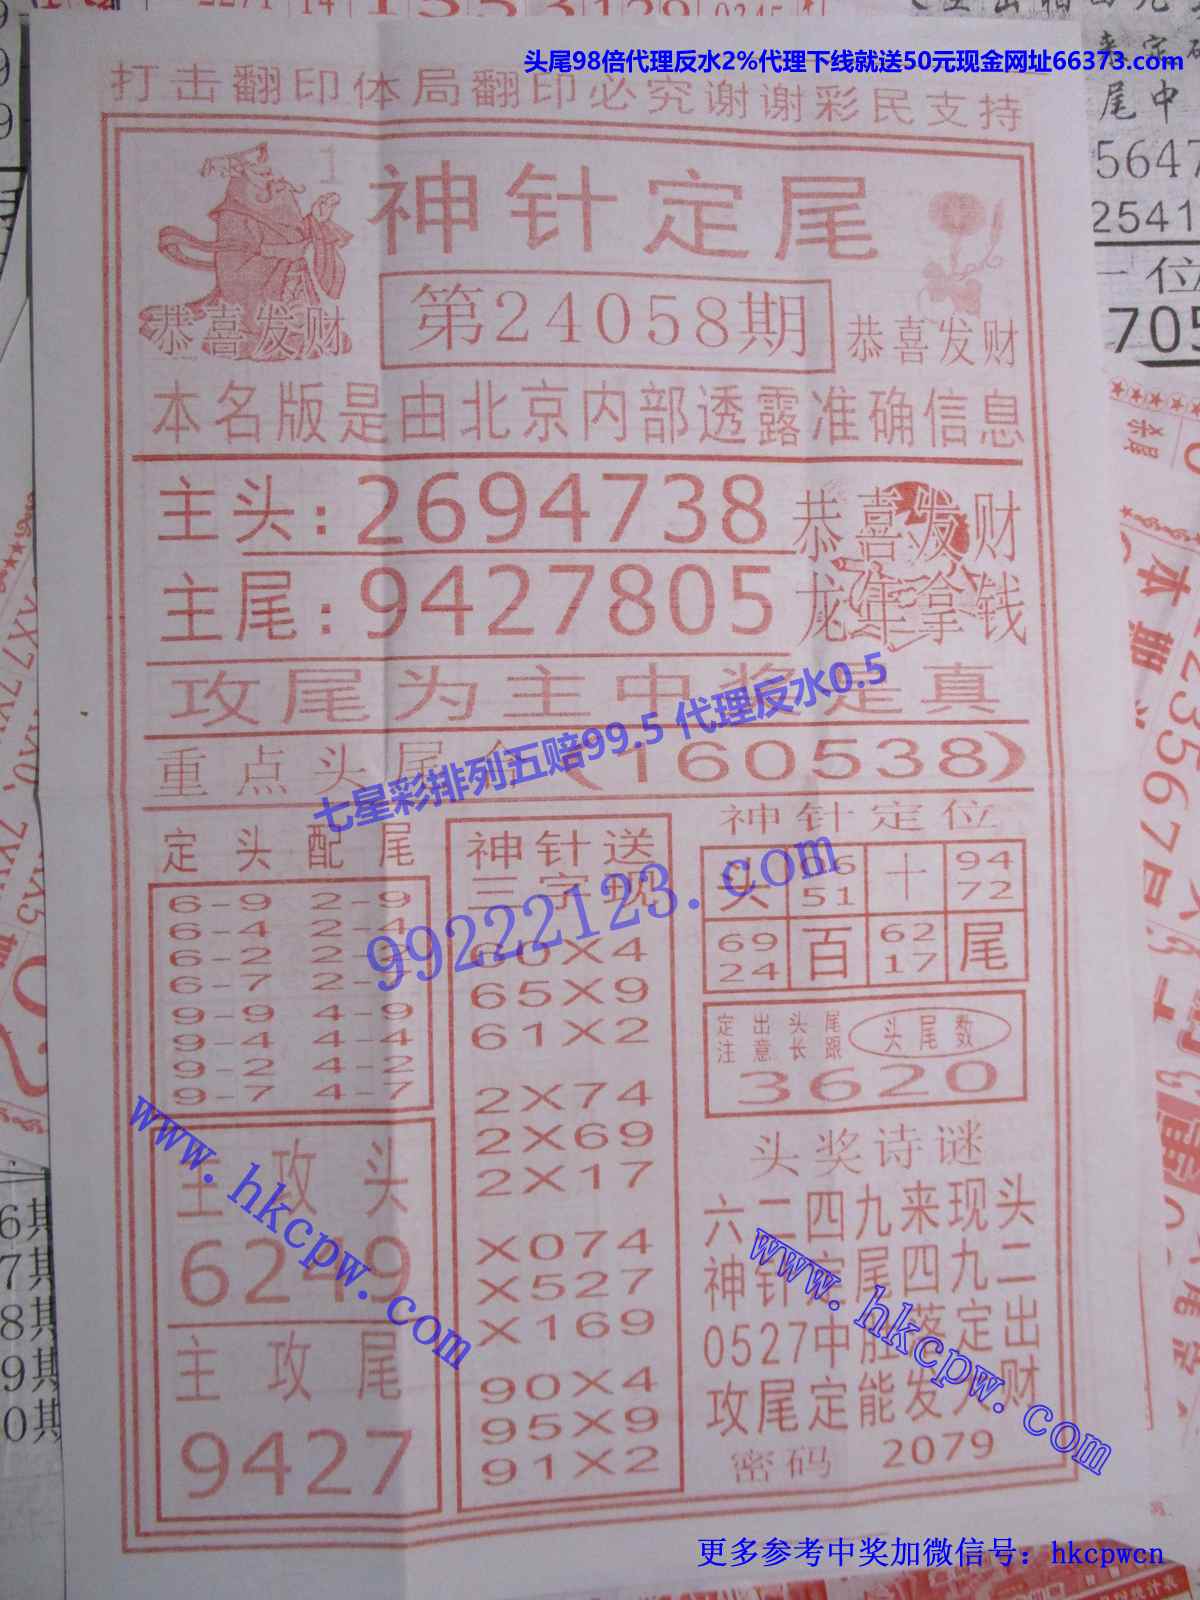 头尾98倍代理反水2%代理下线就送50元现金网址66373.com
打击翻印体局翻印必究谢谢彩民支持
神针定尾
第24058期
恭喜发财
恭喜发财
本名版是由北京内部透露准确信息
主头:2694738
恭喜发财
主尾:9427805
龙年拿钱
攻尾为主中奖是真
七星彩排列五赔99.5 代理反水0.5
重点头尾 (160538)
99222123.com
定头配尾
6-9 2-9
6-4 2-4
6-2 2-2
6-7 2-7
9-9 4-9
9-4 4-4
9-2 4-2
9-7 4-7
主攻头
6249
主攻尾
9427
神针送
三字现
60X4
65X9
61X2
2X74
2X69
2X17
X074
X527
X169
90X4
95X9
91X2
神针定位
头 06 十 94
51 72
69 百 62 尾
24 17
定出头尾
注意长跟
头尾数
3620
头奖诗谜
六二四九来现头
神针定尾四九二
0527中胜落定出
攻尾定能发大财
密码 2079
www.hkcpw.com
www.hkcpw.com
更多参考中奖加微信号：hkcpwcn
尾中
5647
2541
一位
705
6期
7期
8期
9期
0期